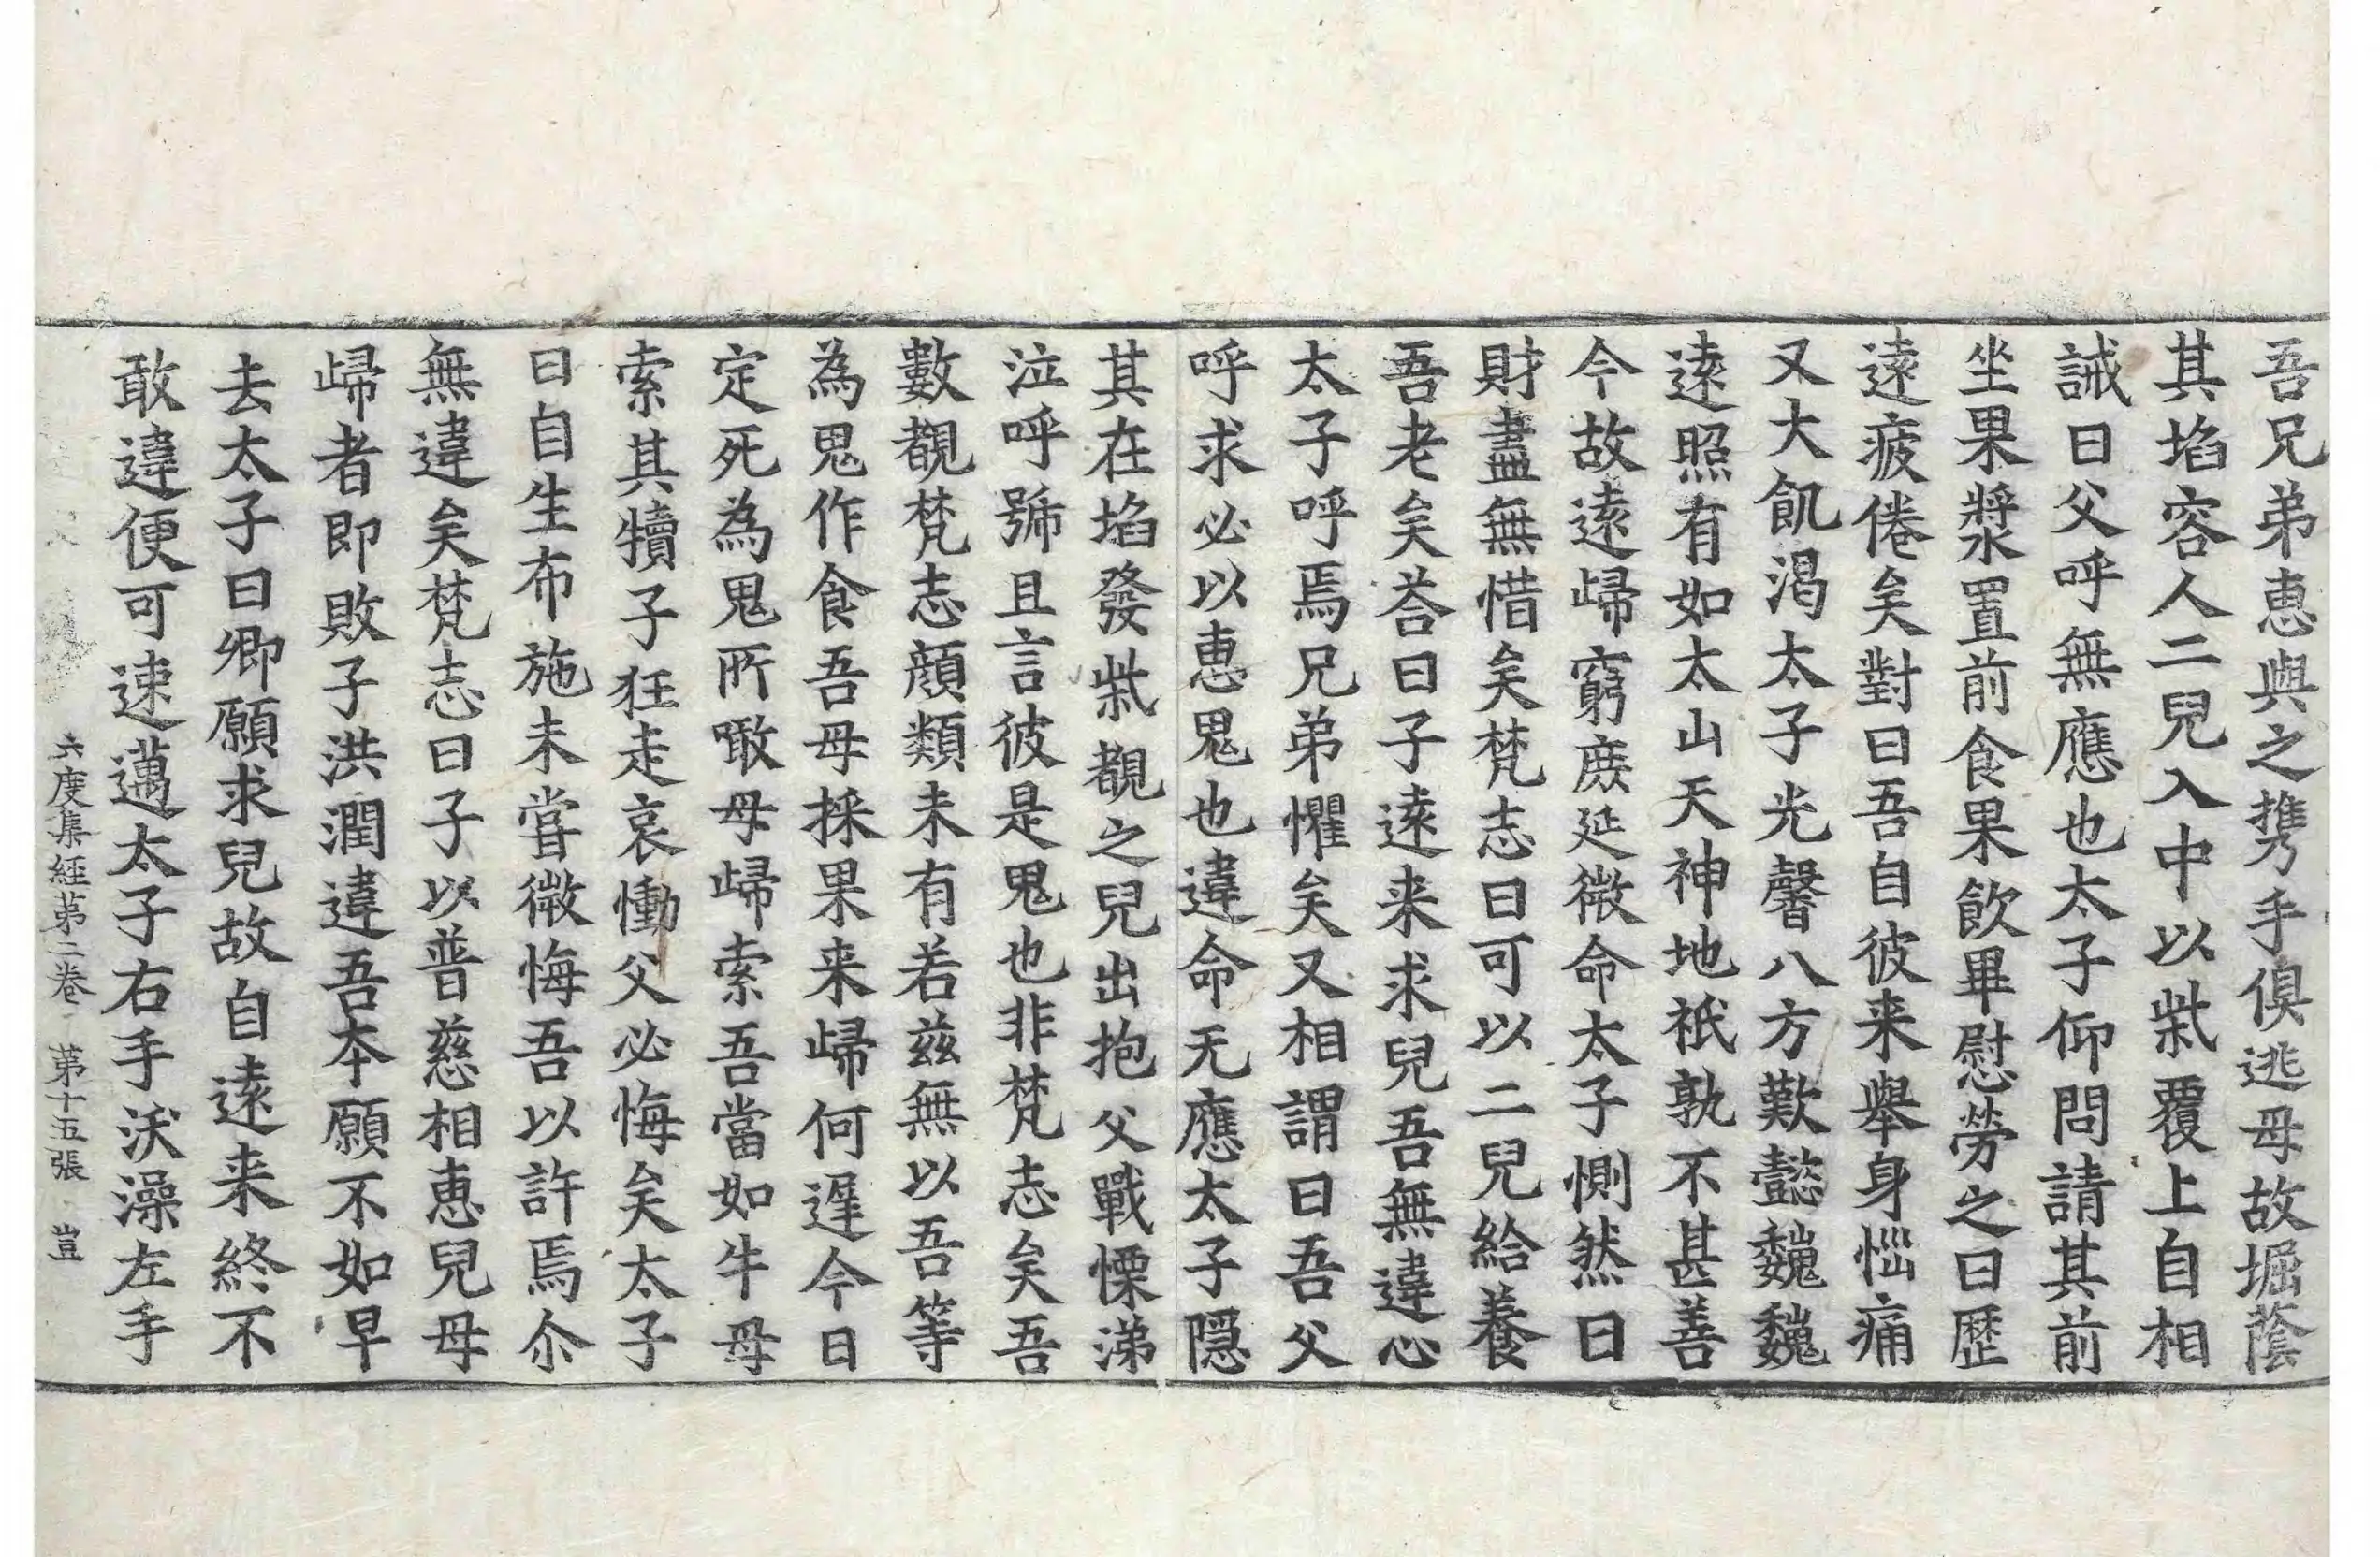 吾兄弟惠與之携手俱逃母故堀蔭
其埳容人二兒入中以柴覆上自相
誡曰父呼無應也太子仰問請其前
坐果漿置前食果飲畢慰勞之曰歴
遠疲倦矣對曰吾自彼来舉身惱痛
又大飢渴太子光馨八方歎懿巍巍
遠照有如太山天神地祇孰不甚善
今故遠歸窮庶延微命太子惻然曰
財盡無惜矣梵志曰可以二兒給養
吾老矣荅曰子遠来求兒吾無違心
太子呼焉兄弟懼矣又相謂曰吾父
呼求必以惠鬼也違命无應太子隱
其在埳發柴覩之兒出抱父戰慄涕
泣呼號且言彼是鬼也非梵志矣吾
數覩梵志顔類未有若兹無以吾等
為鬼作食吾母採果来歸何遲今日
定死為鬼所噉母歸索吾當如牛母
索其犢子狂走哀慟父必悔矣太子
曰自生布施未甞微悔吾以許焉尒
無違矣梵志曰子以普慈相惠兒母
歸者即敗子洪潤違吾本願不如早
去太子曰卿願求兒故自遠来終不
敢違便可速邁太子右手沃澡左手
六度集經第二卷 第十五張 豈